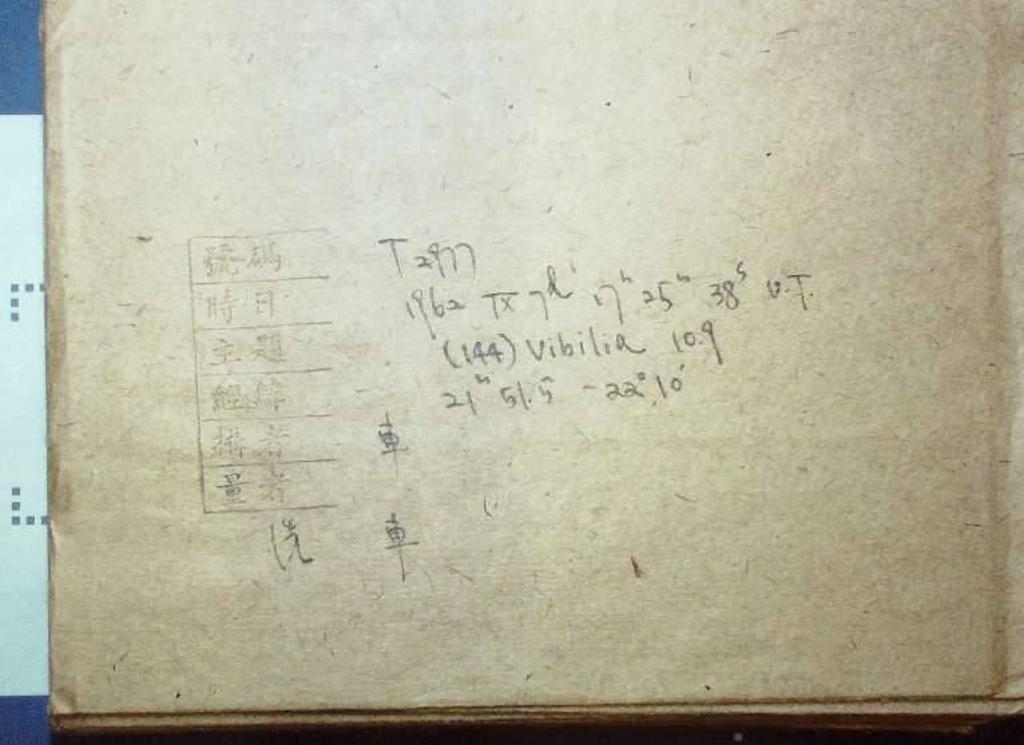 號碼 T 2977
時日 1962 IX 7ᵈ 17ʰ 25ᵐ 38ˢ U.T.
主題 (144) Vibilia 10.9
經緯 21ʰ 51.5 -22°10'
攝者 車
量者
洗 車